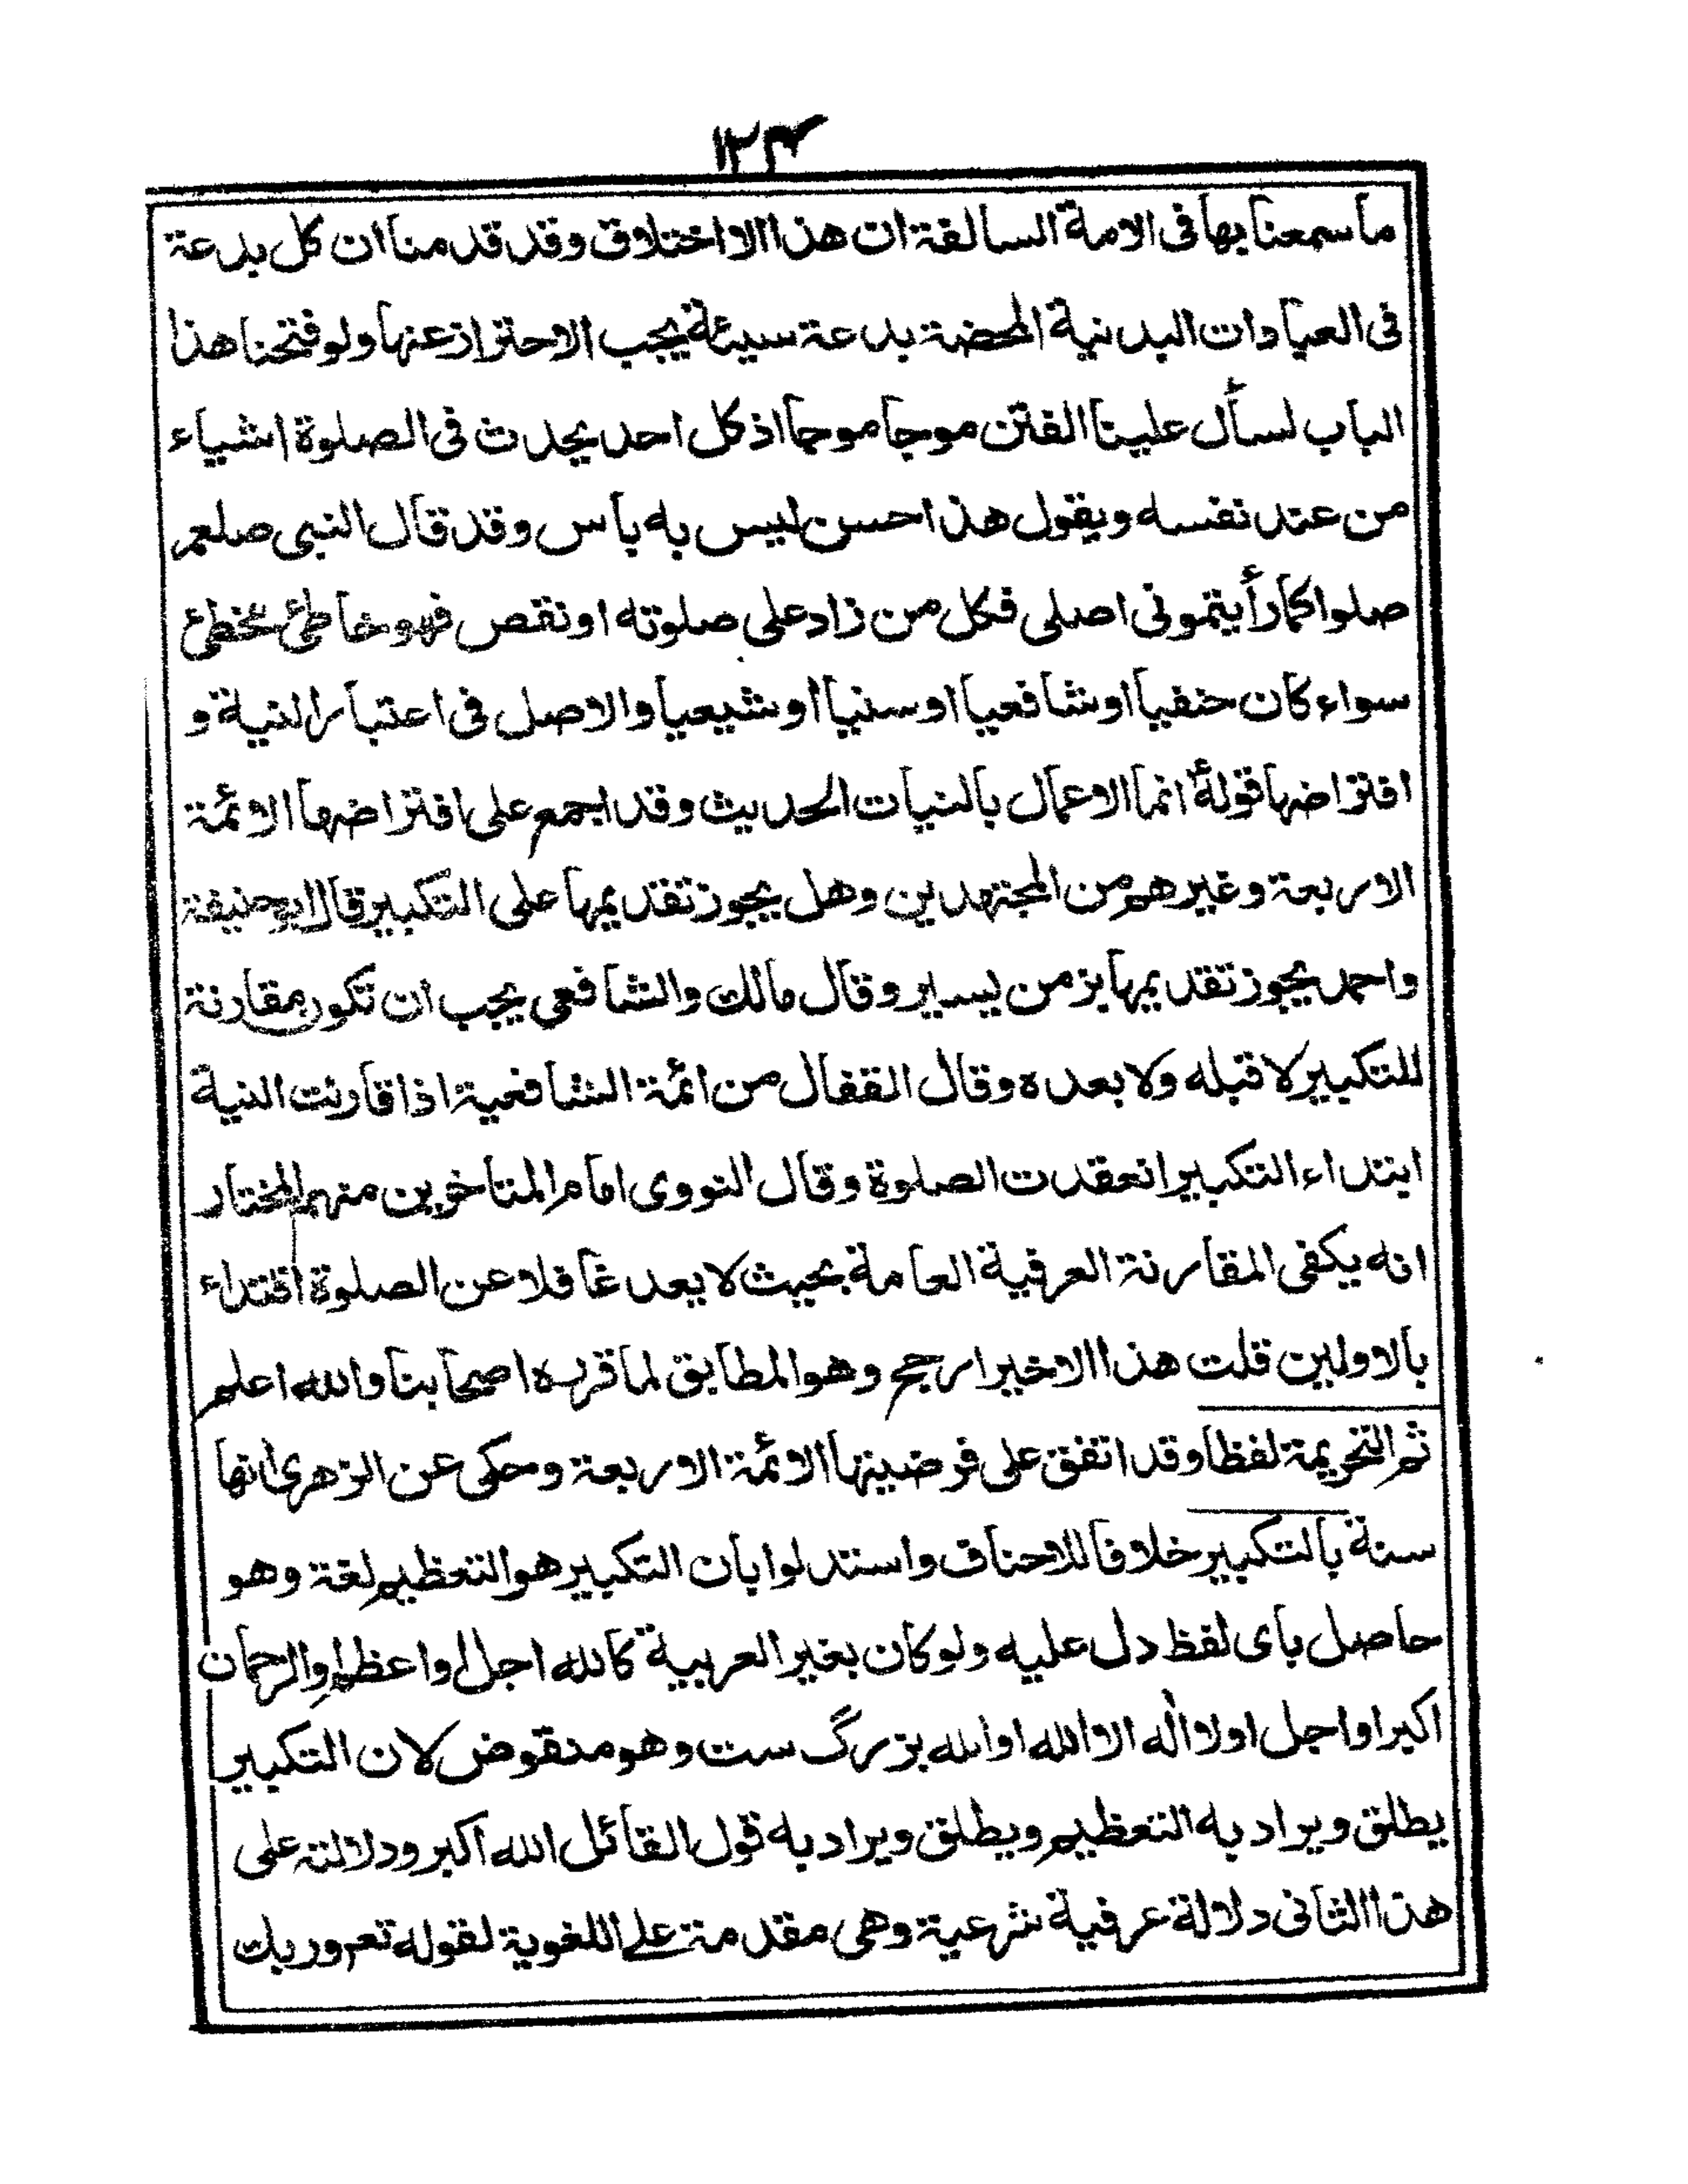 ١٢٣
ما سمعنا بها فى الامة السالفة ان هذا الا اختلاق وقد قدمنا ان كل بدعة
فى العبادات البدنية المحضة بدعة سيئة يجب الاحتراز عنها ولو فتحنا هذا
الباب لسأل علينا الفتن موجا موجا اذ كل احد يحدث فى الصلوة اشياء
من عند نفسه ويقول هذا حسن ليس به باس وقد قال النبى صلعم
صلوا كما رأيتمونى اصلى فكل من زاد على صلوته او نقص فهو خاطئ مخطئ
سواء كان حنفيا او شافعيا او سنيا او شيعيا والاصل فى اعتبار النية و
افتراضها قوله انما الاعمال بالنيات الحديث وقد اجمع على افتراضها الائمة
الاربعة وغيرهم من المجتهدين وهل يجوز تقديمها على التكبير قال ابوحنيفة
واحمد يجوز تقديمها بزمن يسير وقال مالك والشافعى يجب ان تكون مقارنة
للتكبير لا قبله ولا بعده وقال القفال من ائمة الشافعية اذا قارنت النية
ابتداء التكبير انعقدت الصلوة وقال النووى امام المتاخرين منهم المختار
انه يكفى المقارنة العرفية العامة بحيث لا يعد غافلا عن الصلوة اقتداء
بالاولين قلت هذا الاخير ارجح وهو المطابق لما قربه اصحابنا والله اعلم
ثم التحريمة لفظا وقد اتفق على فرضيتها الائمة الاربعة وحكى عن الزهرى انها
سنة بالتكبير خلافا للاحناف واستدلوا بان التكبير هو التعظيم لغة وهو
حاصل باى لفظ دل عليه ولو كان بغير العربية كالله اجل او اعظم او الرحمان
اكبر او اجل او لا اله الا الله او الله بزرگ ست وهو منقوض لان التكبير
يطلق ويراد به التعظيم ويطلق ويراد به قول القائل الله اكبر ودلالته على
هذا الثانى دلالة عرفية شرعية وهى مقدمة على اللغوية لقوله تعم وربك